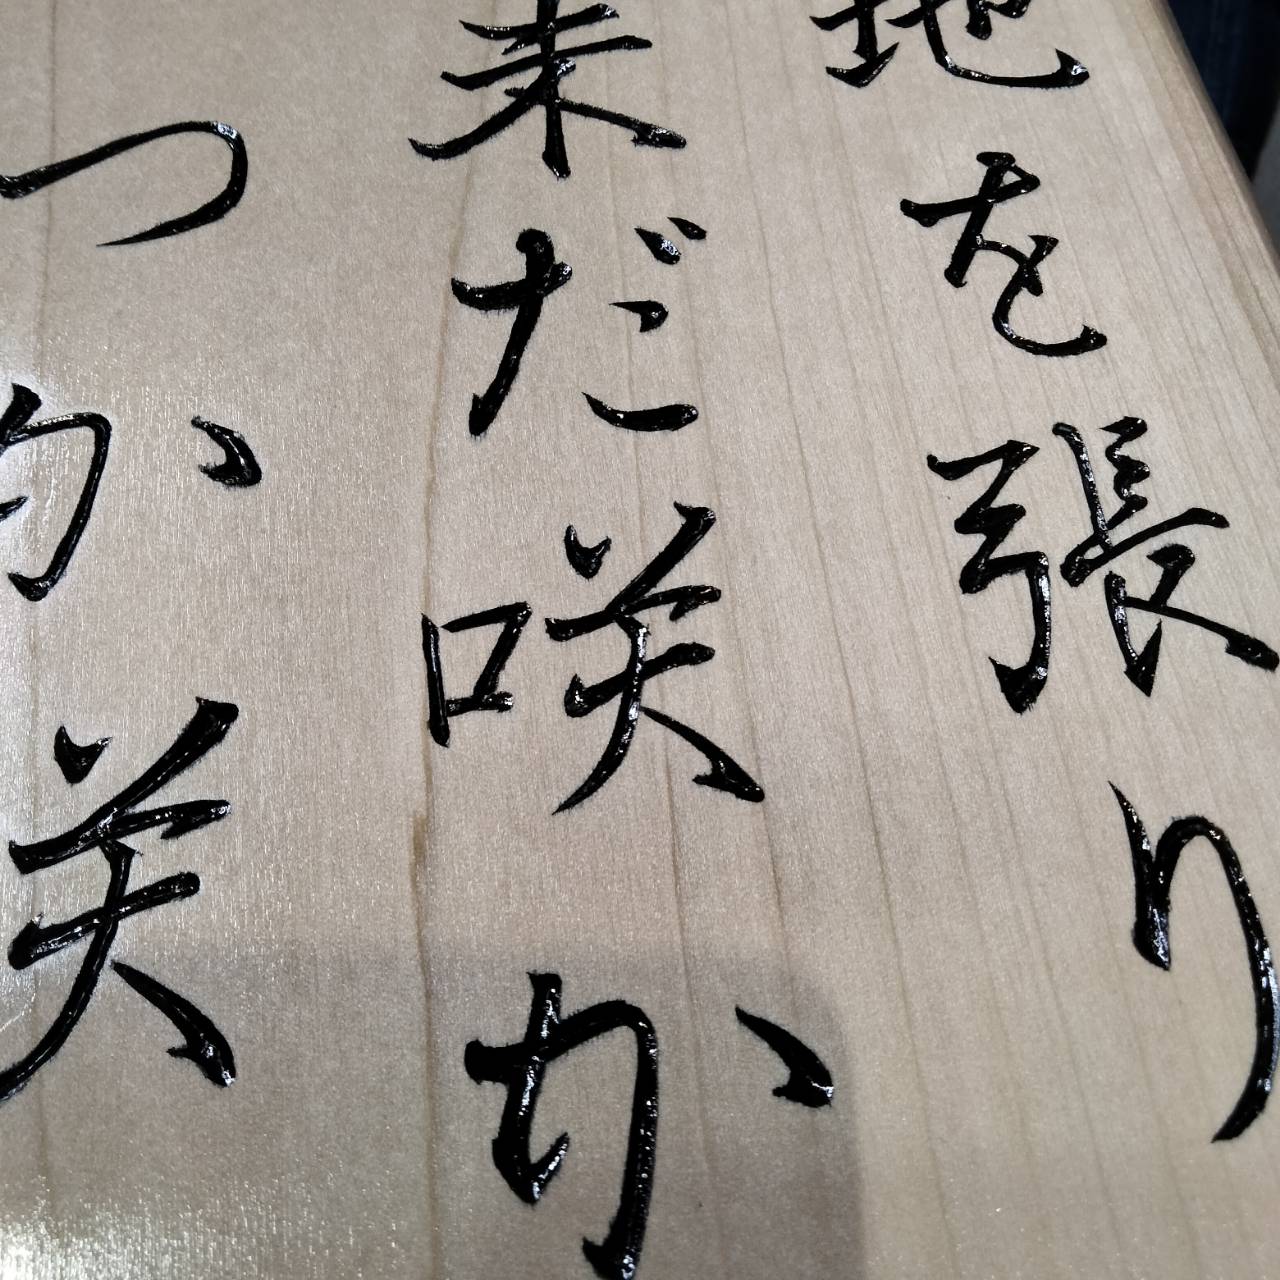 地を張り
未だ咲か
つか咲